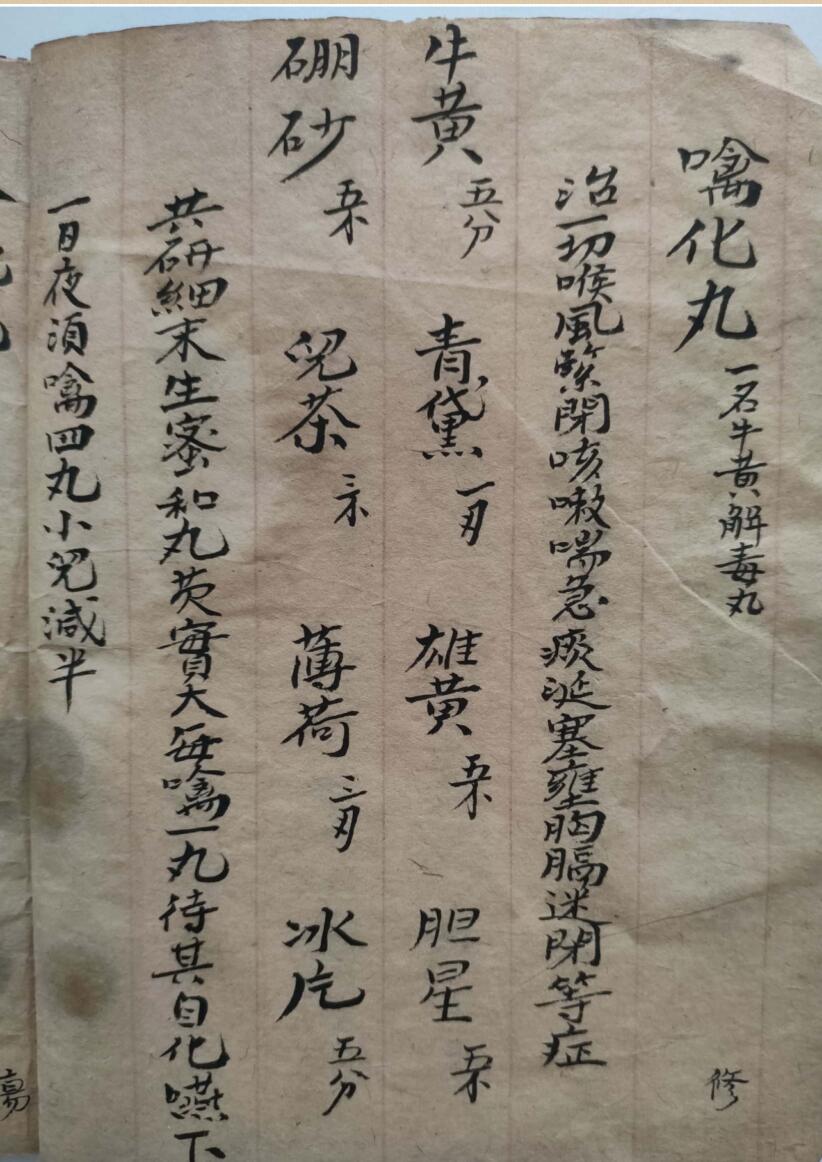 噙化丸 一名牛黄解毒丸 修
治一切喉風緊閉咳嗽喘急痰涎塞壅胸膈迷閉等症
牛黄 五分 青黛 一刄 雄黄 五 胆星 五
硼砂 五 児茶 三 薄荷 三刄 冰片 五分
共研細末生蜜和丸芡實大每噙一丸待其自化嚥下
一日夜須噙四丸小児減半